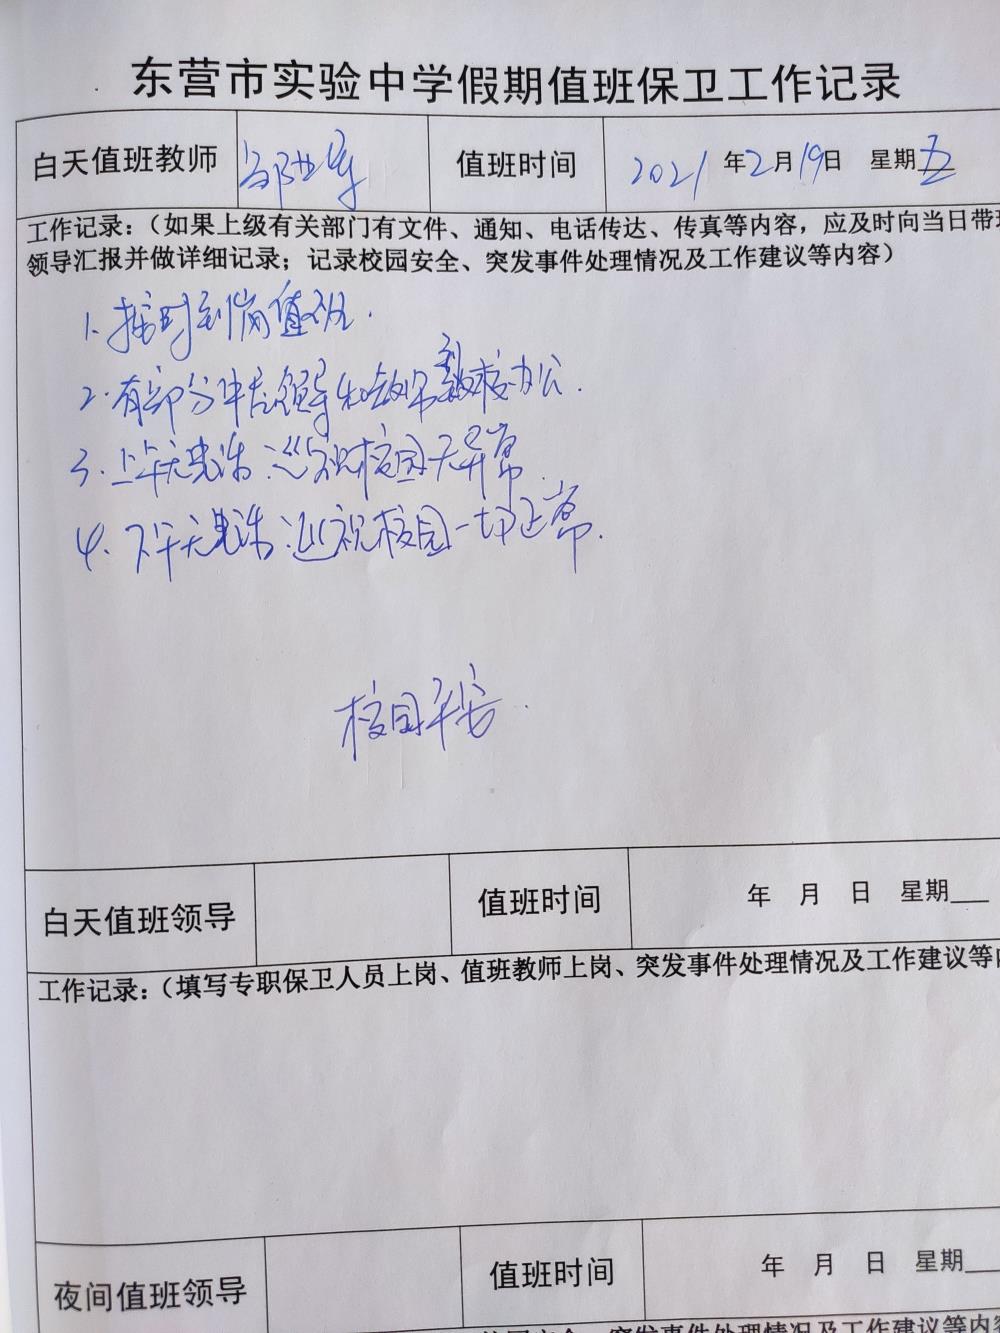 东营市实验中学假期值班保卫工作记录
白天值班教师 值班时间 2021年2月19日 星期五
工作记录:(如果上级有关部门有文件、通知、电话传达、传真等内容，应及时向当日带班
领导汇报并做详细记录；记录校园安全、突发事件处理情况及工作建议等内容)
1. 按时到岗值班.
2. 有部分中层领导和教师到校办公.
3. 上午 巡视校园无异常.
4. 下午 巡视校园一切正常.
校园平安.
白天值班领导 值班时间 年 月 日 星期
工作记录:(填写专职保卫人员上岗、值班教师上岗、突发事件处理情况及工作建议等内
夜间值班领导 值班时间 年 月 日 星期
突发事件处理情况及工作建议等内容